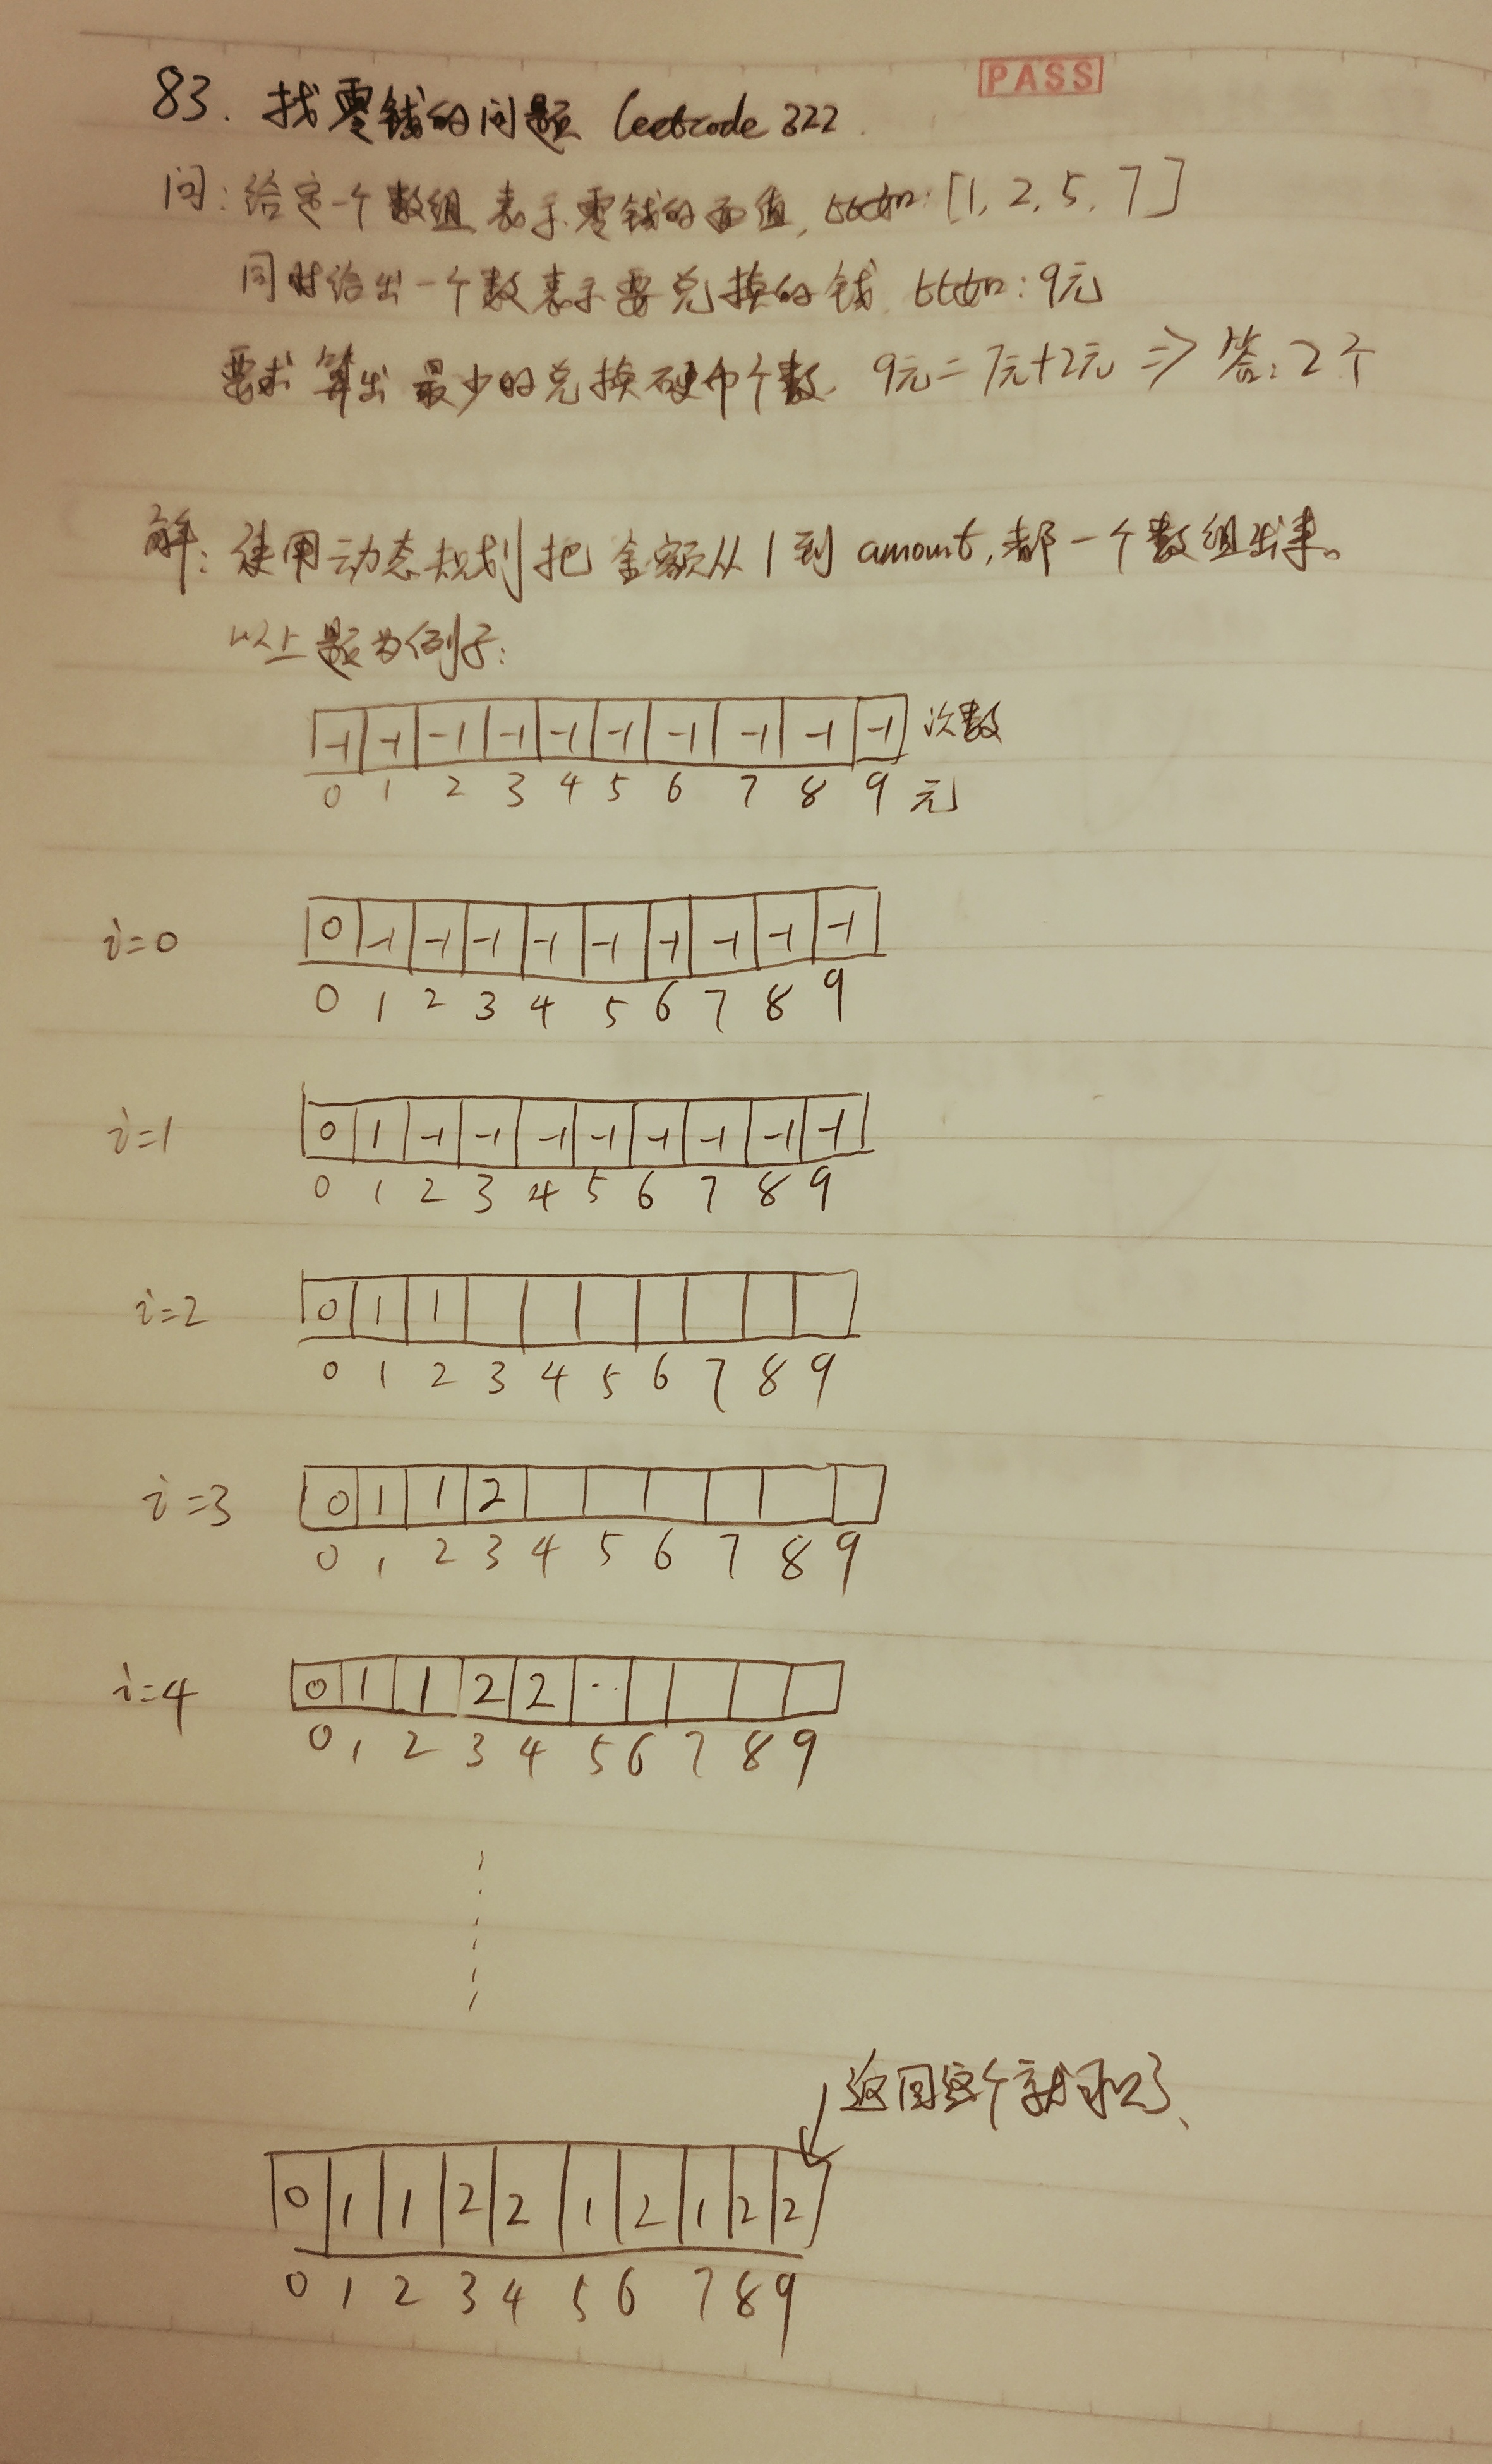 83. 找零钱的问题 leetcode 322.
PASS
问: 给定一个数组, 表示零钱的面值, 比如: [1, 2, 5, 7]
同时给出一个数表示要兑换的钱, 比如: 9元
要求算出最少的兑换硬币个数. 9元=7元+2元 => 答: 2个
解: 使用动态规划把金额从1到amount, 都一个数组出来。
以上题为例子:
-1 -1 -1 -1 -1 -1 -1 -1 -1 -1 次数
0 1 2 3 4 5 6 7 8 9 元
i=0 0 -1 -1 -1 -1 -1 -1 -1 -1 -1
0 1 2 3 4 5 6 7 8 9
i=1 0 1 -1 -1 -1 -1 -1 -1 -1 -1
0 1 2 3 4 5 6 7 8 9
i=2 0 1 1
0 1 2 3 4 5 6 7 8 9
i=3 0 1 1 2
0 1 2 3 4 5 6 7 8 9
i=4 0 1 1 2 2 ..
0 1 2 3 4 5 6 7 8 9
返回这个就可以了、
0 1 1 2 2 1 2 1 2 2
0 1 2 3 4 5 6 7 8 9